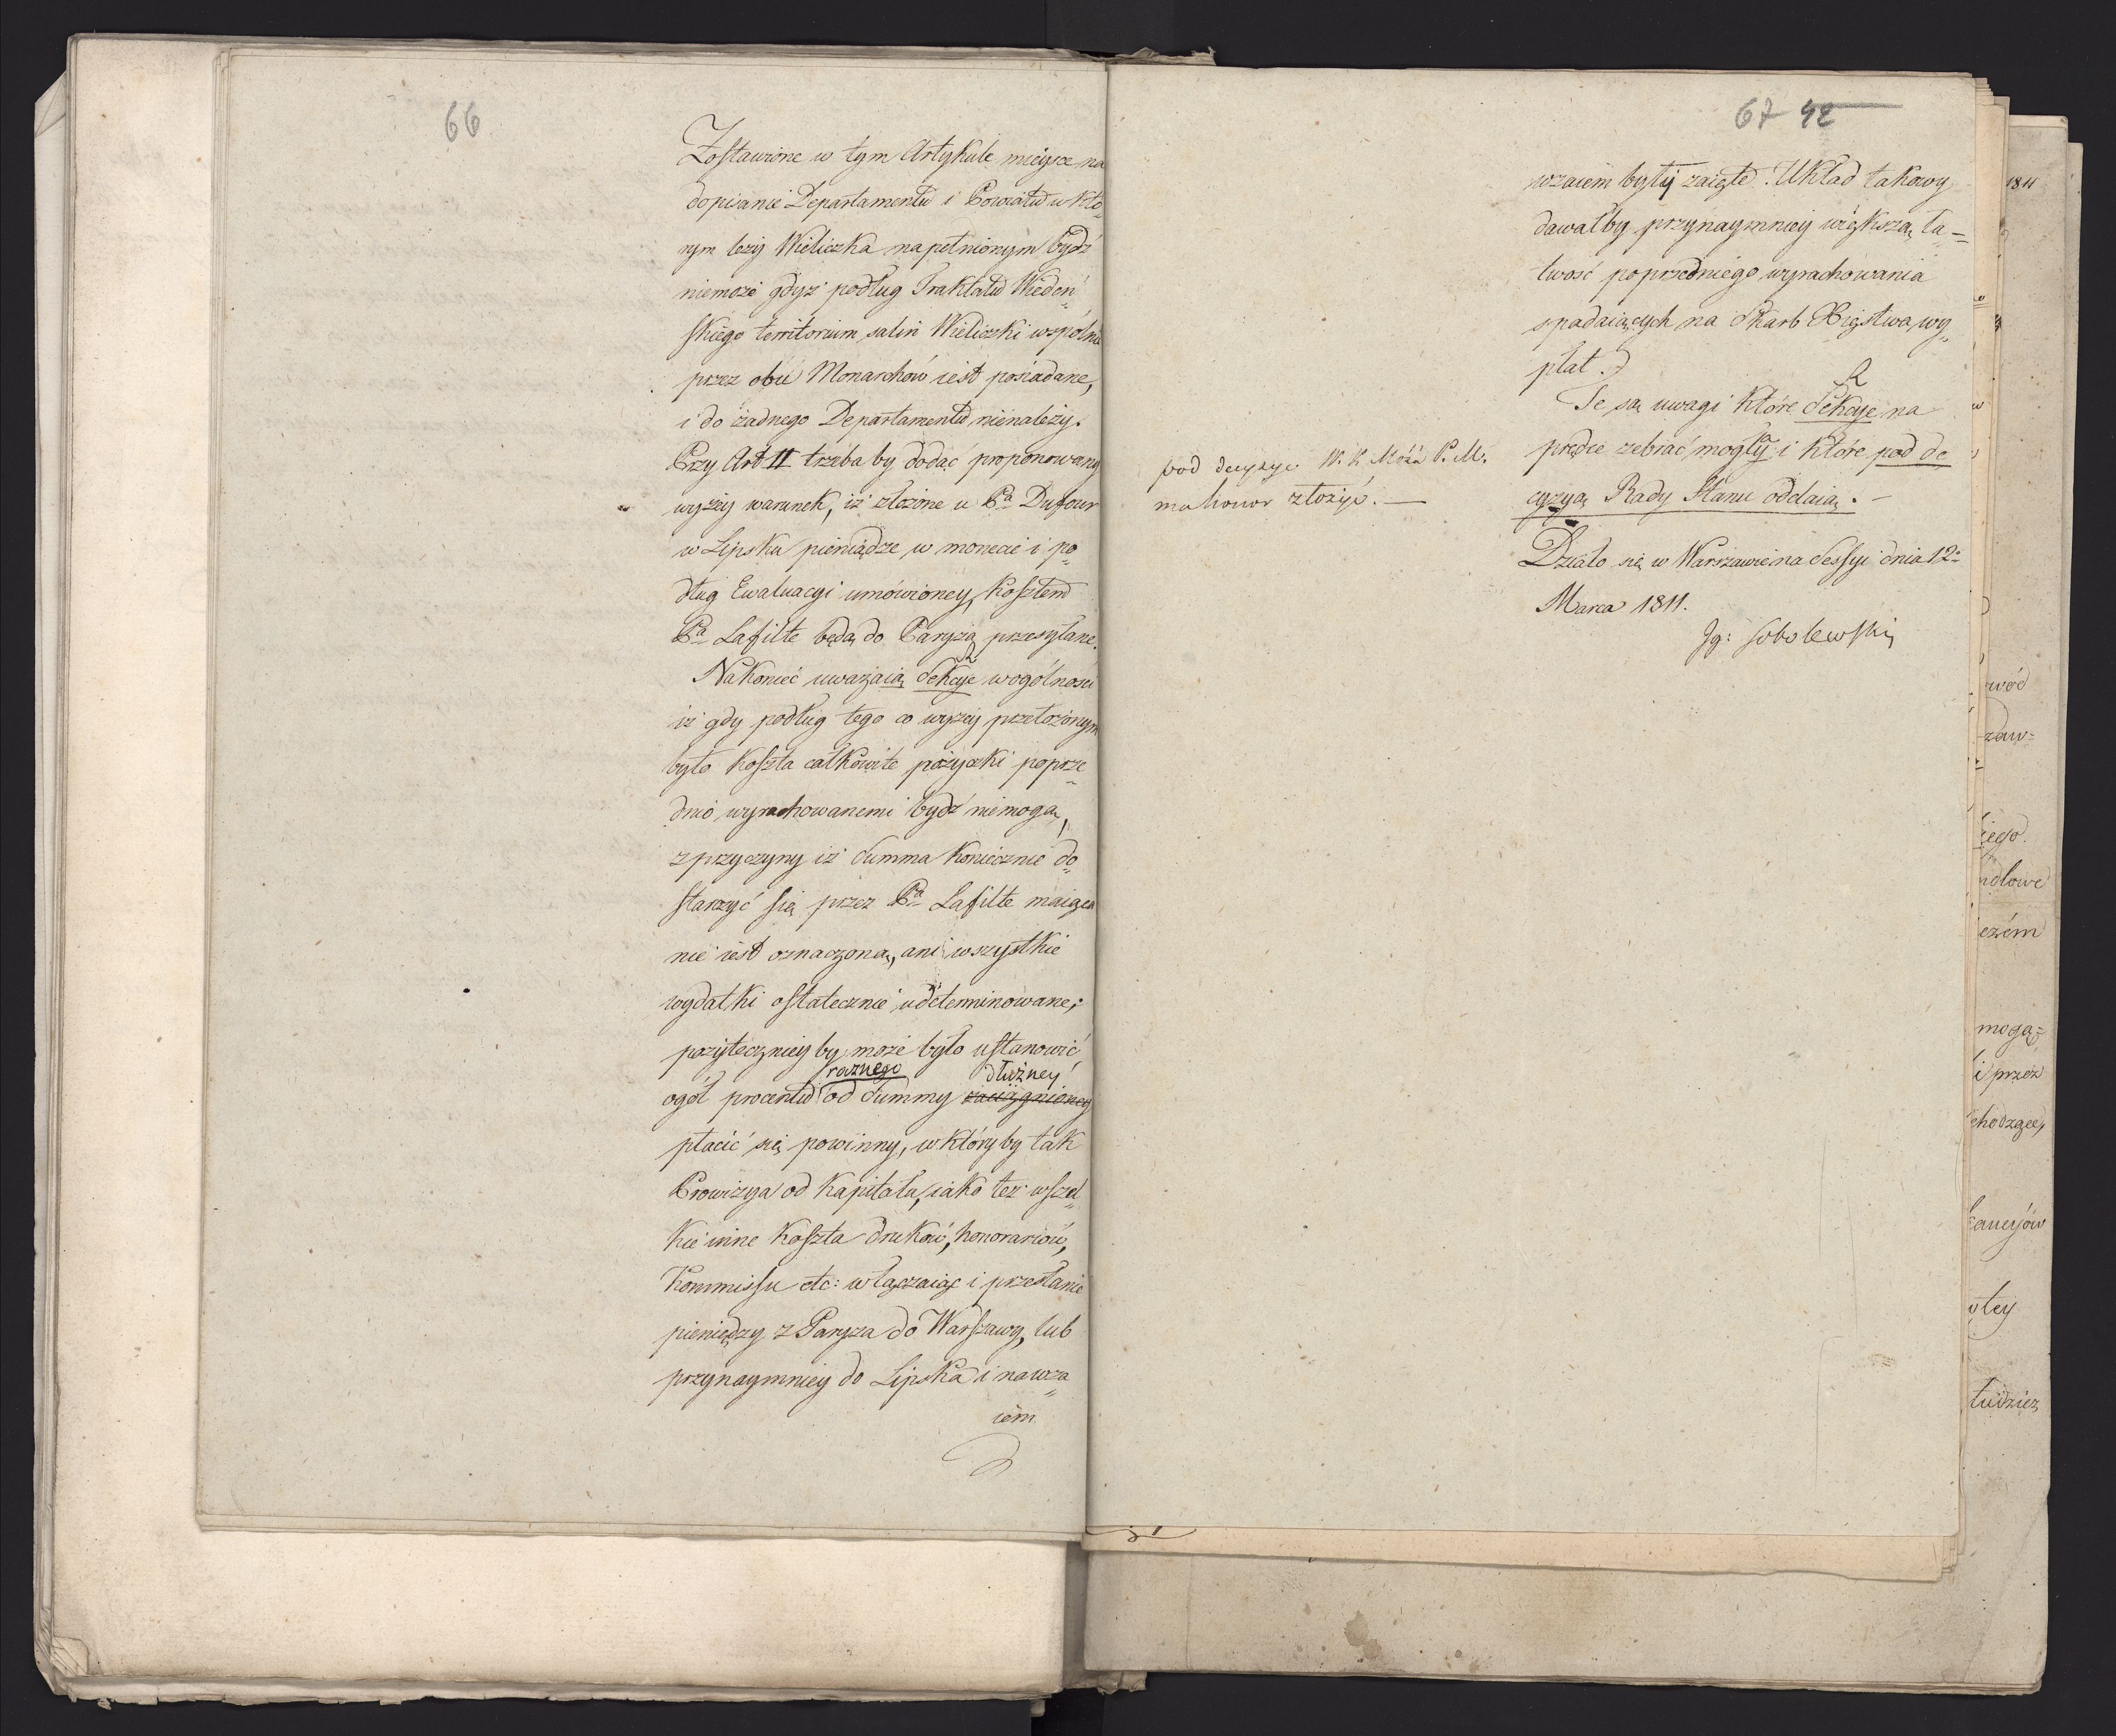 66
Zostawione w tym Artykule mieysce na
dopisanie Departamentu i Powiatu w któ„
rym leży Wieliczka napełnionym bydź
niemoże gdyż podług Traktatu Wiedeń„
skiego territorium salin Wieliczki wspólnie
przez obu Monarchów iest posiadane,
i do żadnego Departamentu nienależy.
Przy Art II trzeba by dodać proponowany
wyżey warunek, iż złożone u Pa Dufour
w Lipsku pieniądze w monecie i po„
dług Ewaluacyi umówioney, kosztem
Pa Lafitte będą do Paryża przesyłane.
Nakoniec uważaią Sekcye wogólności
iż gdy podług tego co wyżey przełożonym
było koszta całkowite pożyczki poprze„
dnio wyrachowanemi bydź niemogą,
z przyczyny iż Summa koniecznie do„
starczyć się przez Pa Lafitte maiąca
nie iest oznaczoną, ani wszystkie
wydatki ostatecznie udeterminowane;
pożyteczniey by może było ustanowić
rocznego dłużney
ogół procentu od Summy zaciągnioney
płacić się powinny, w który by tak
Prowizya od Kapitału, iako też wszel„
kie inne koszta druków, honorariów,
Kommissu etc: włączaiąc i przesłanie
pieniędzy z Paryża do Warszawy, lub
przynaymniey do Lipska i nawza„
iem
67 42
wzaiem były zaięte. Układ takowy
dawałby przynaymniey większą ła=
twość poprzedniego wyrachowania
spadaiących na Skarb Xięstwa wy„
płat.
Te są uwagi które Sekcye na
prędce zebrać mogły i które pod de
cyzyą Rady Stanu oddaią. –
pod decyzye W. K. Mość P. M.
ma honor złożyć. —
Działo się w Warszawie na Sessyi dnia 12
Marca 1811.
Ig: Sobolewski
1811
wód
zaw=
iego
idłowe
ezém
mogą=
i przez
chodzące,
tey